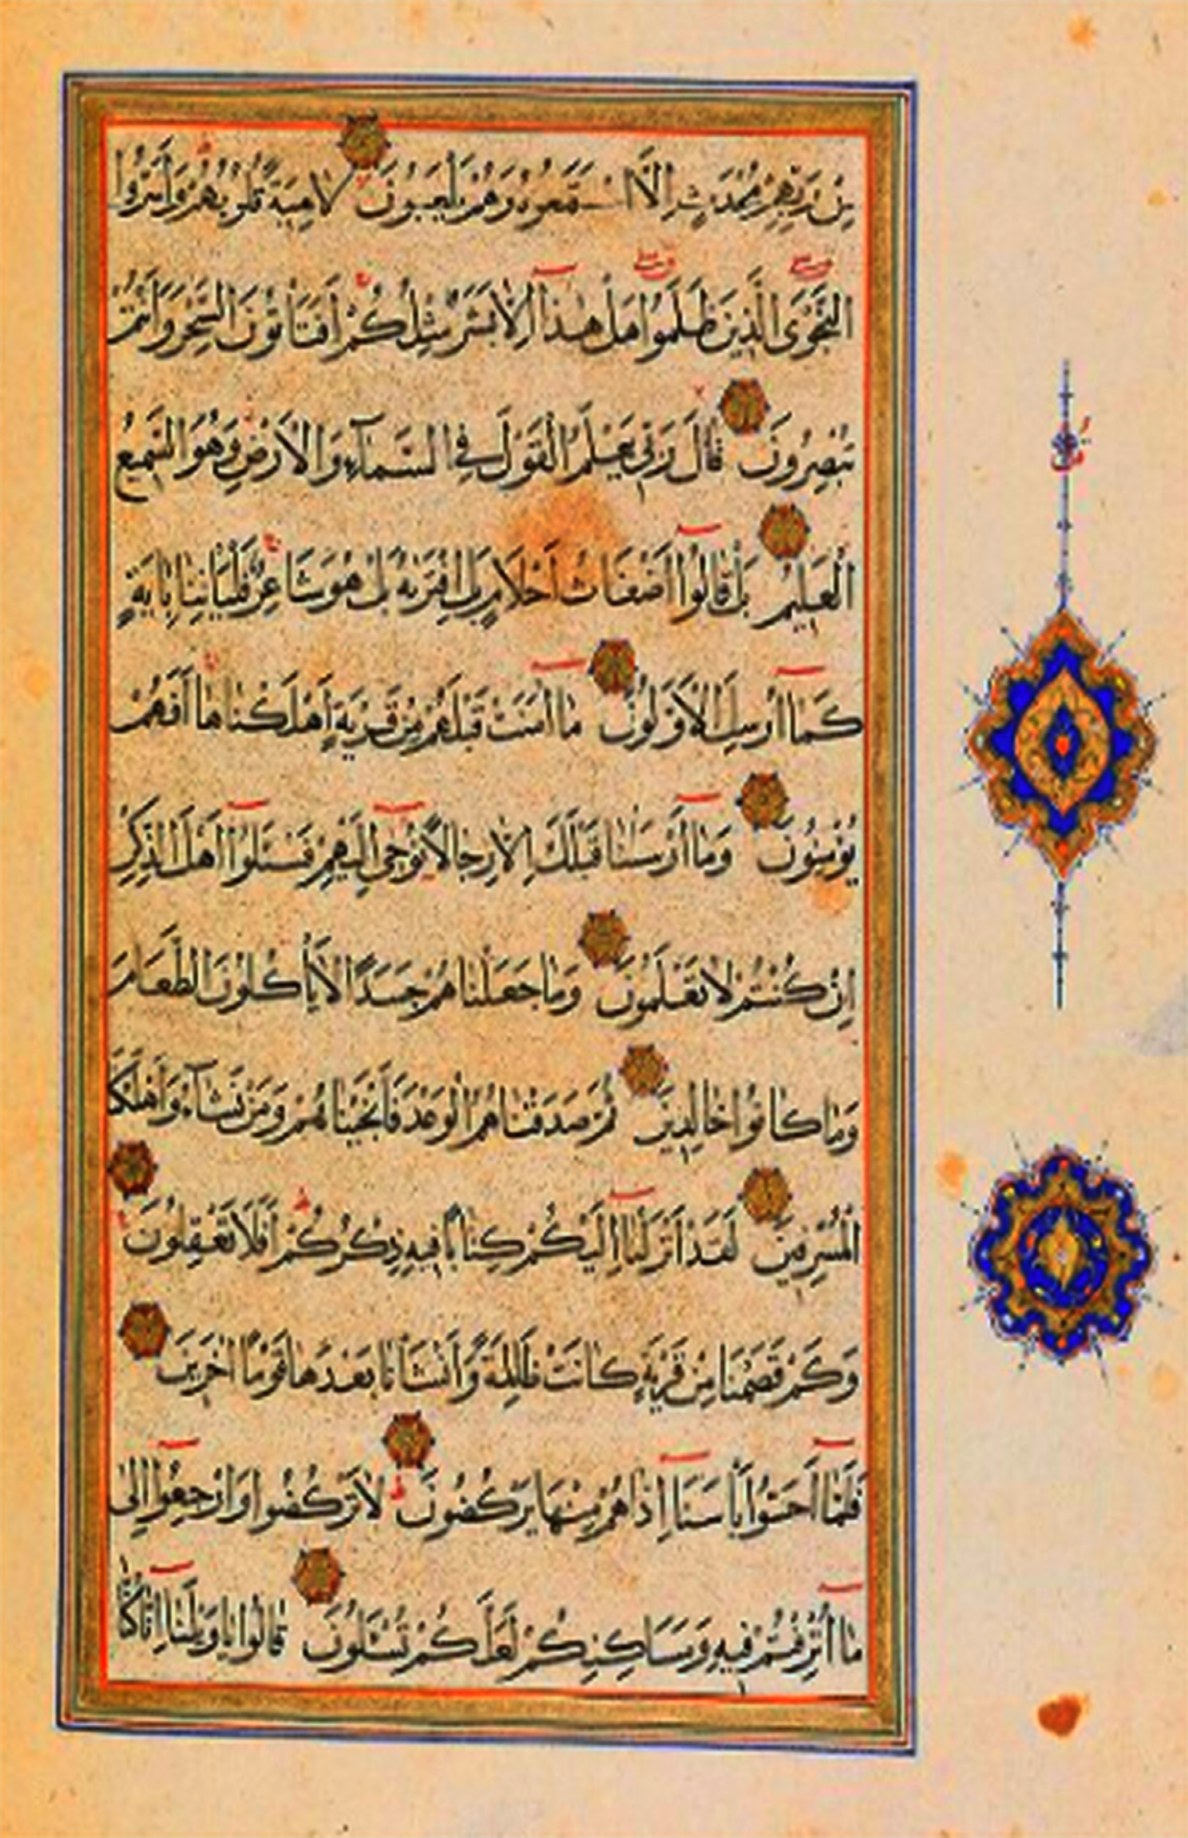 مِن رَبِّهِمْ مُحْدَثٍ اِلَّا اسْتَمَعُوهُ وَهُمْ يَلْعَبُونَ لَاهِيَةً قُلُوبُهُمْ وَاَسَرُّوا
النَّجْوَى الَّذِينَ ظَلَمُوا هَلْ هٰذَا اِلَّا بَشَرٌ مِثْلُكُمْ اَفَتَاْتُونَ السِّحْرَ وَاَنْتُمْ
تُبْصِرُونَ قَالَ رَبِّي يَعْلَمُ الْقَوْلَ فِي السَّمَاءِ وَالْاَرْضِ وَهُوَ السَّمِيعُ
الْعَلِيمُ بَلْ قَالُوا اَضْغَاثُ اَحْلَامٍ بَلِ افْتَرٰىهُ بَلْ هُوَ شَاعِرٌ فَلْيَاْتِنَا بِاٰيَةٍ
كَمَا اُرْسِلَ الْاَوَّلُونَ مَا اٰمَنَتْ قَبْلَهُمْ مِنْ قَرْيَةٍ اَهْلَكْنَاهَا اَفَهُمْ
يُؤْمِنُونَ وَمَا اَرْسَلْنَا قَبْلَكَ اِلَّا رِجَالًا نُوحِي اِلَيْهِمْ فَسْـَٔلُوا اَهْلَ الذِّكْرِ
اِنْ كُنْتُمْ لَا تَعْلَمُونَ وَمَا جَعَلْنَاهُمْ جَسَدًا لَا يَاْكُلُونَ الطَّعَامَ
وَمَا كَانُوا خَالِدِينَ ثُمَّ صَدَقْنَاهُمُ الْوَعْدَ فَاَنْجَيْنَاهُمْ وَمَنْ نَشَاءُ وَاَهْلَكْنَا
الْمُسْرِفِينَ لَقَدْ اَنْزَلْنَا اِلَيْكُمْ كِتَابًا فِيهِ ذِكْرُكُمْ اَفَلَا تَعْقِلُونَ
وَكَمْ قَصَمْنَا مِنْ قَرْيَةٍ كَانَتْ ظَالِمَةً وَاَنْشَاْنَا بَعْدَهَا قَوْمًا اٰخَرِينَ
فَلَمَّا اَحَسُّوا بَاْسَنَا اِذَا هُمْ مِنْهَا يَرْكُضُونَ لَا تَرْكُضُوا وَارْجِعُوا اِلٰى
مَا اُتْرِفْتُمْ فِيهِ وَمَسَاكِنِكُمْ لَعَلَّكُمْ تُسْـَٔلُونَ قَالُوا يَا وَيْلَنَا اِنَّا كُنَّا